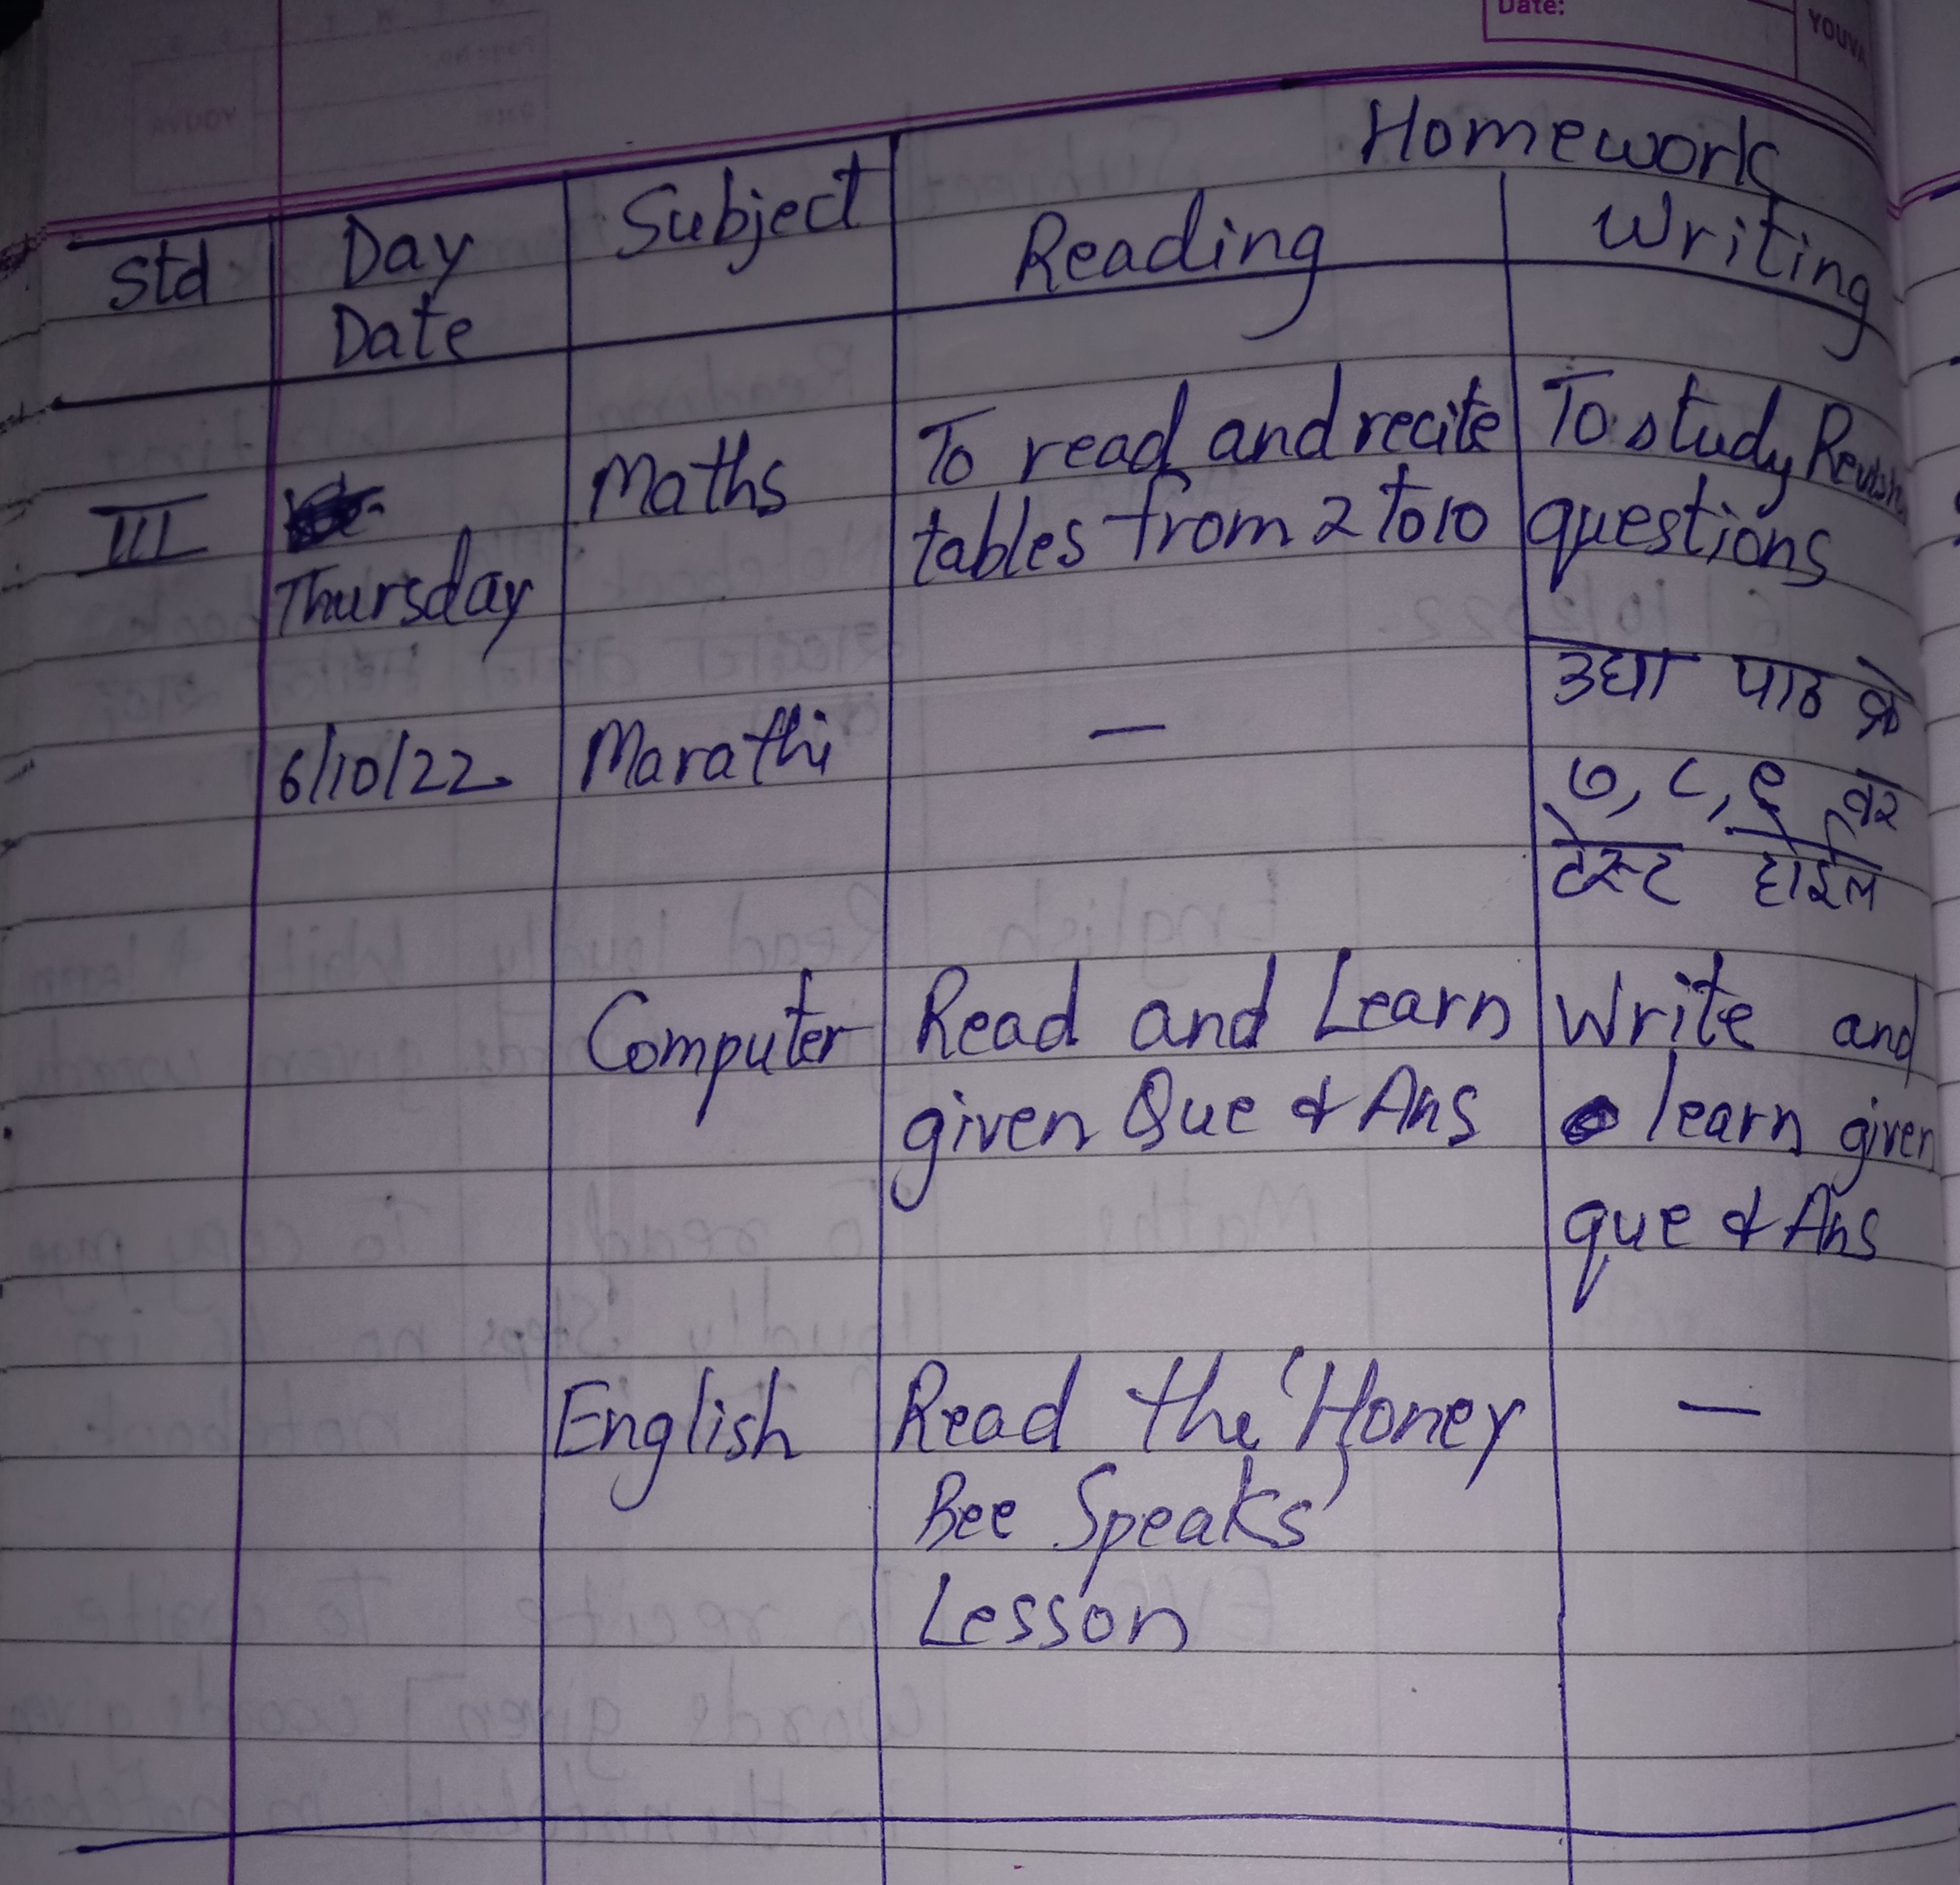 Date:
YOUVA
Homework
Std
Day
Date
Subject
Reading
Writing
III
Thursday
6/10/22.
Maths
To read and recite
tables from 2 to 10
To study
questions
Marathi
—
उद्या पाठ क्र
७, ८, ९ वर
टेस्ट होईल
Computer
Read and Learn
given Que & Ans
Write and
learn given
que & Ans
English
Read the 'Honey
Bee Speaks'
Lesson
—